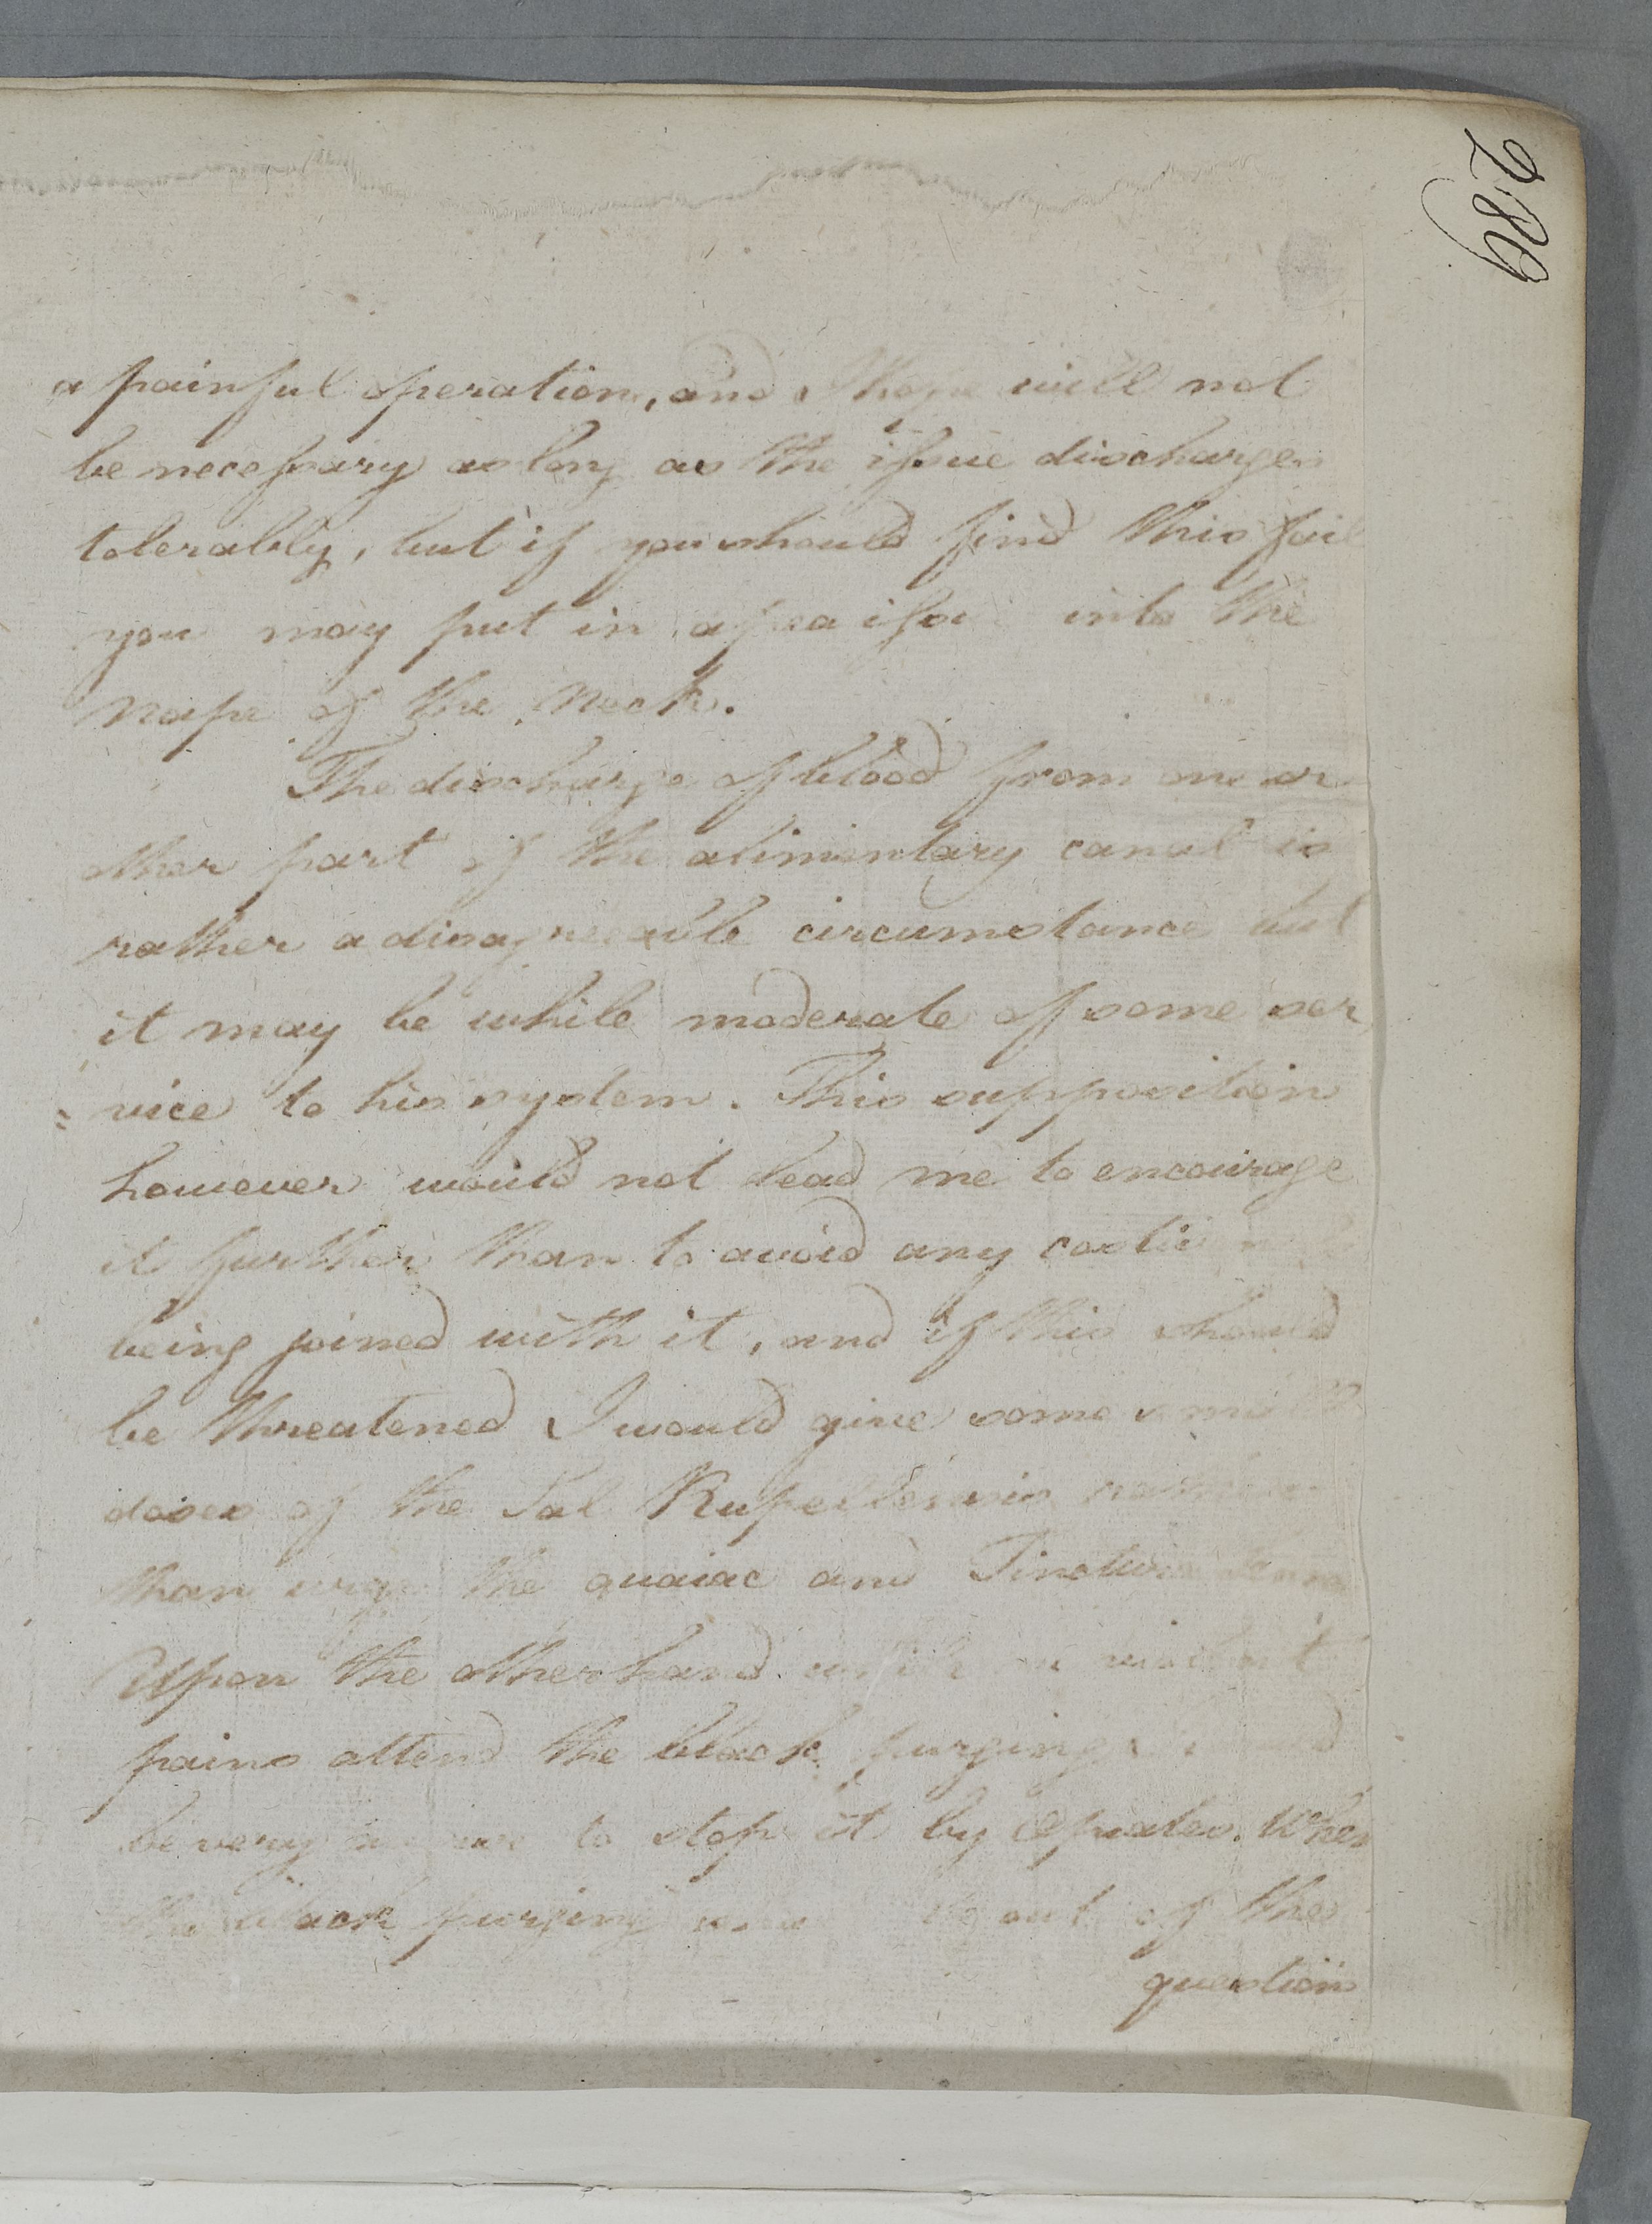 289
a painful operation, and I hope will not
be necessary as long as the issue discharges
tolerably, but if you should find this fail
you may put in a pea issue into the
Nape of the Neck.
The discharge of blood from one or
other part of the alimentary canal is
rather a disagreeable circumstance but
it may be while moderate of some ser
= vice to his system. This supposition
however would not lead me to encourage
it further than to avoid any
being joined with it, and if this should
be threatened I would give some small
doses of the Sal Rupellensis rather
than urge the guaiac and Tinctura
Upon the other hand violent
pains attend the black purging
be very to stop it by Opiates. When
the black purging out of the
question